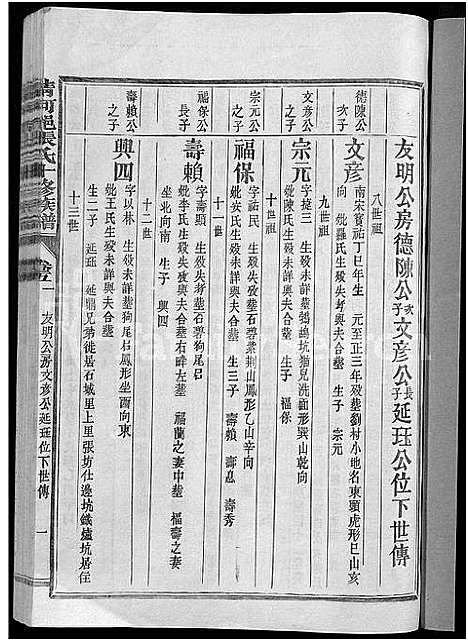 友明公房德陳公次子文彥公長子延珏公位下世傳
八世祖
德陳公次子
文彥
南宋寶祐丁巳年生 元至正三年歿塟劉村小地名東頭虎形巳山亥
向 妣羅氏生歿失考與夫合塟 生子 宗元
九世祖
文彥公之子
宗元
字捷三 生歿失考塟鵓鴣坑猫兒洗面形巽山乾向
妣陳氏生歿未詳與夫合塟 生子 福保
十世祖
宗元公之子
福保
字祐民 生歿失考塟石碧紫荆山鳳形乙山辛向
妣吳氏生歿未詳與夫合塟 生三子 壽賴 壽息 壽秀
十一世
福保公長子
壽賴
字壽顯 生歿失考塟石碧狗尾召
妣李氏生歿失考與夫合塟右畔左塟 福蘭之妻中塟 福壽之妻
坐北向南 生子 興四
十二世
壽賴公之子
興四
字以林 生歿未詳塟狗尾召鳳形坐酉向東
妣王氏生歿未詳與夫合塟
生二子 延珏 延鼎兄弟徙居石城里上里張坊仕邊坑鐵爐坑居住
十三世
清河邑張氏十修族譜
卷之一
友明公房文彥公延珏位下世傳
一